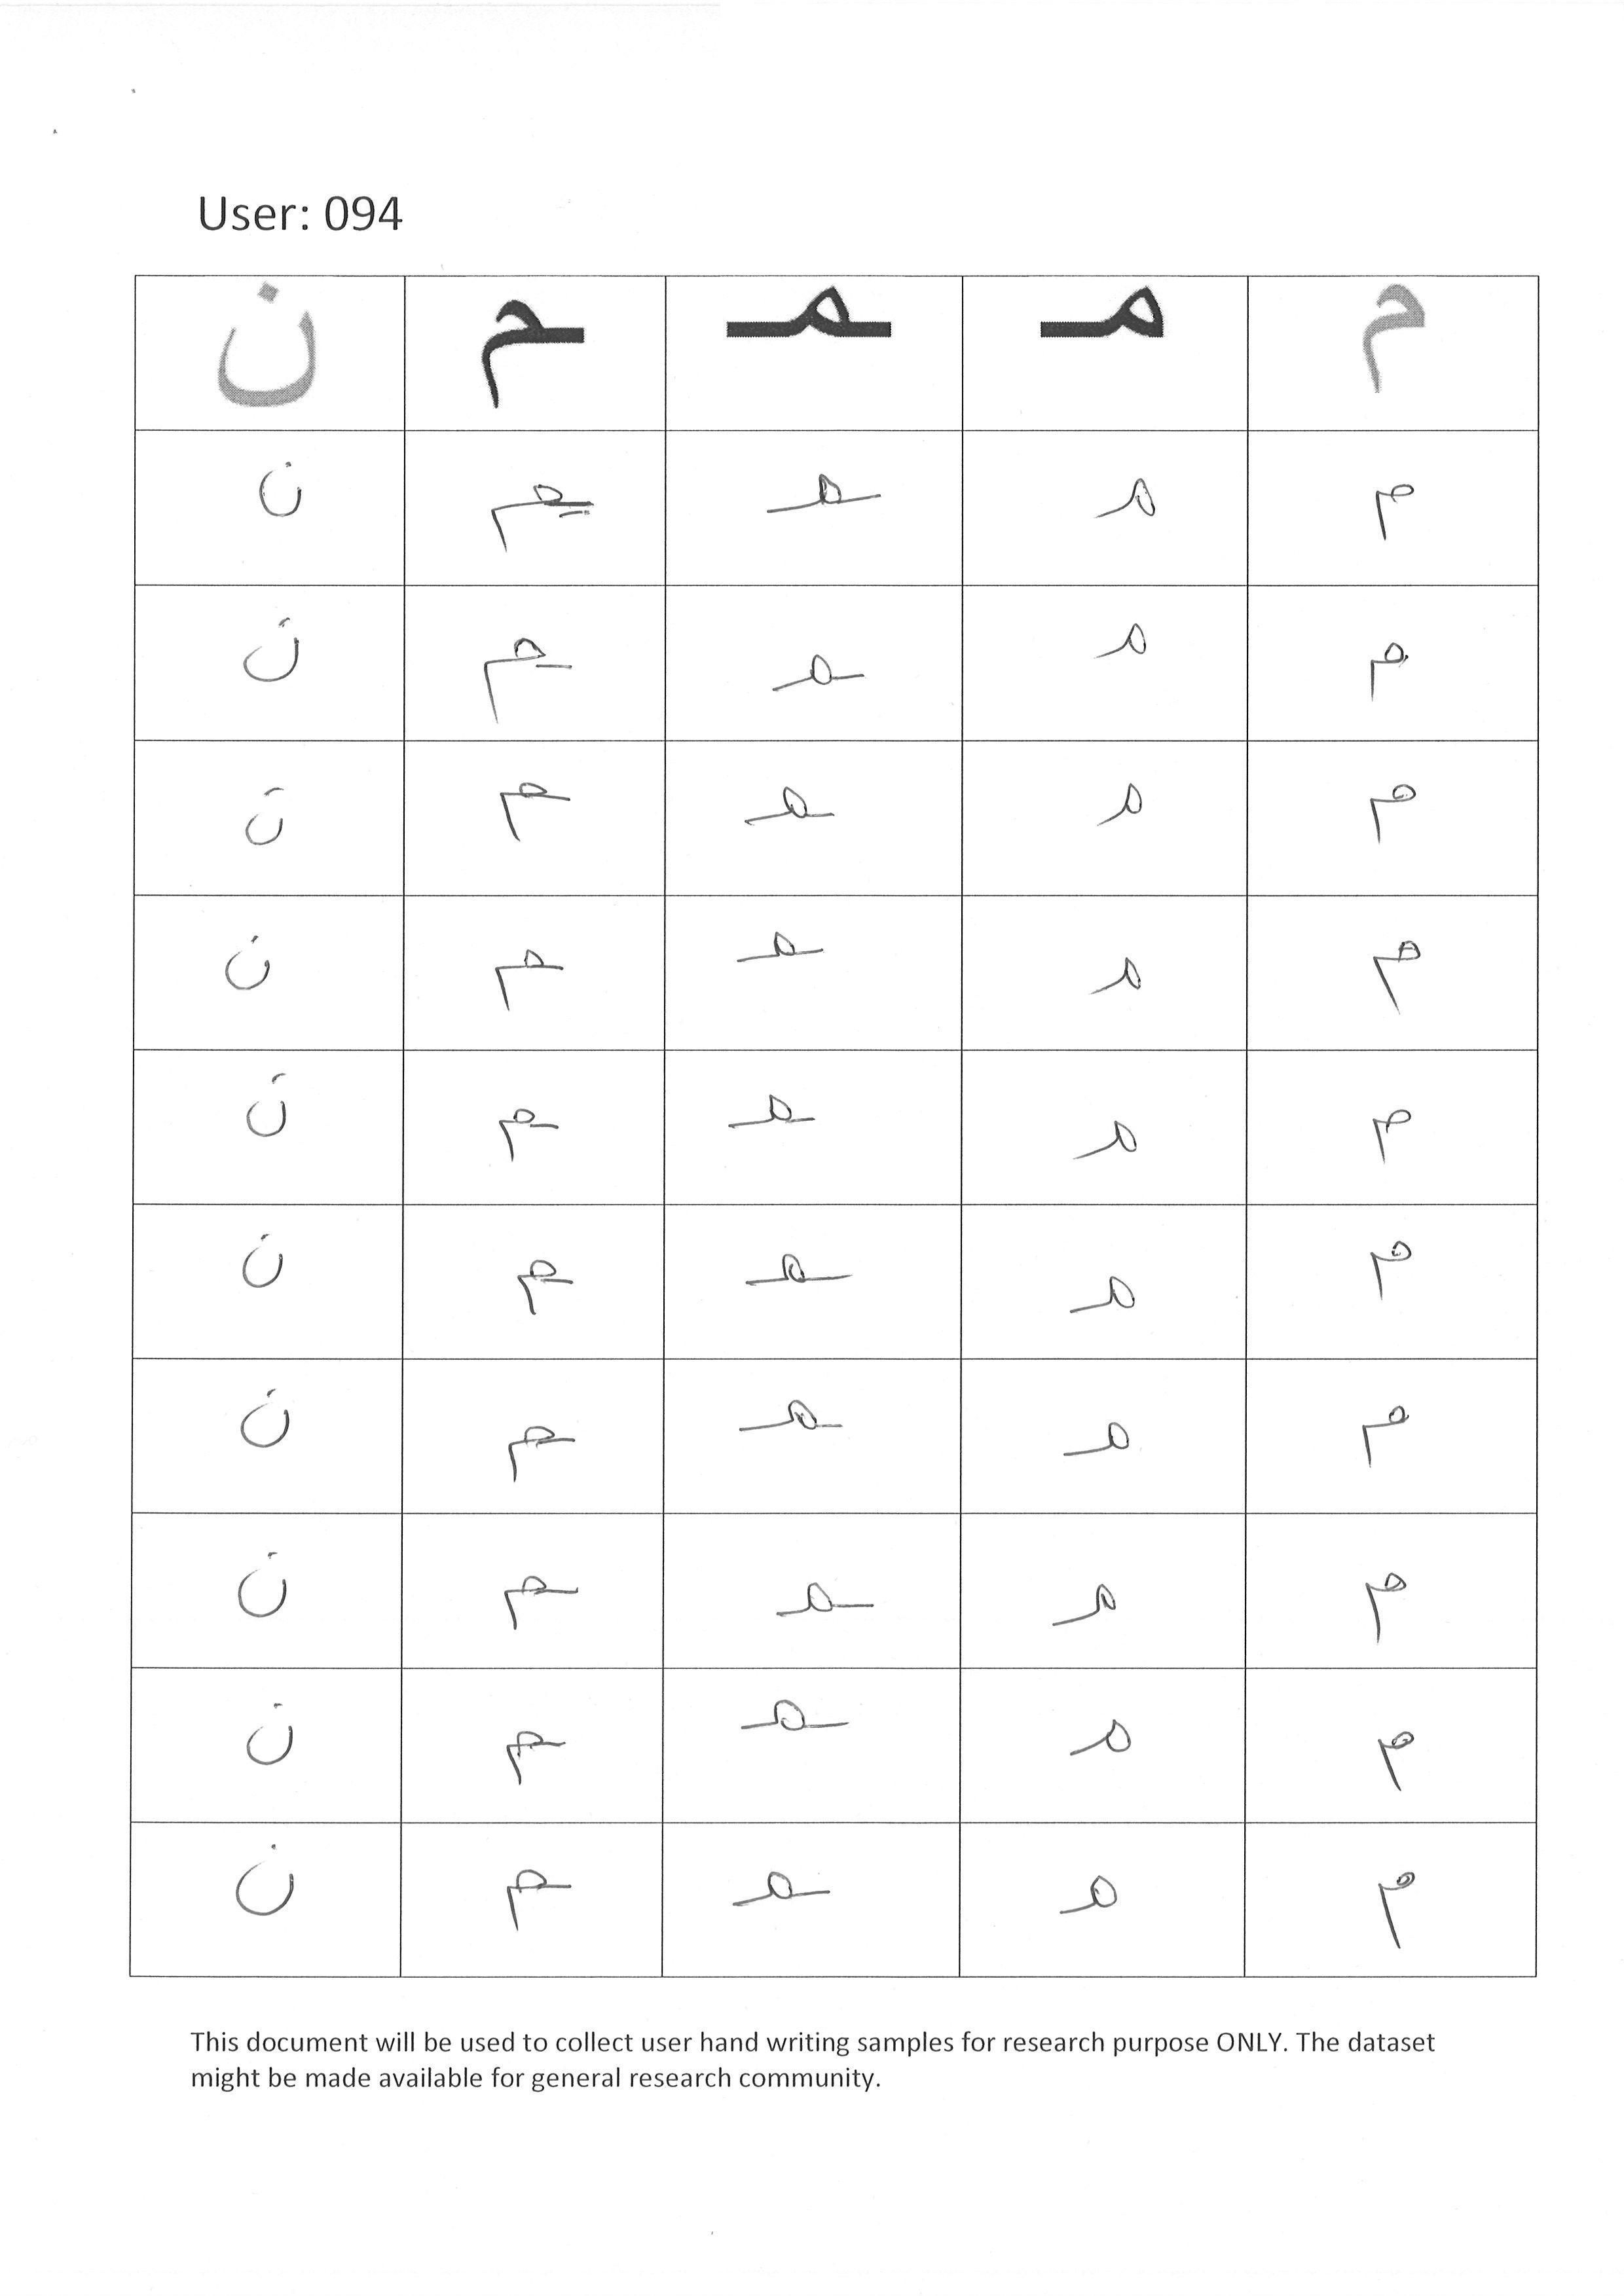 User: 094
م مـ ـمـ ـم ن
م مـ ـمـ ـم ن
م مـ ـمـ ـم ن
م مـ ـمـ ـم ن
م مـ ـمـ ـم ن
م مـ ـمـ ـم ن
م مـ ـمـ ـم ن
م مـ ـمـ ـم ن
م مـ ـمـ ـم ن
م مـ ـمـ ـم ن
م مـ ـمـ ـم ن
This document will be used to collect user hand writing samples for research purpose ONLY. The dataset
might be made available for general research community.